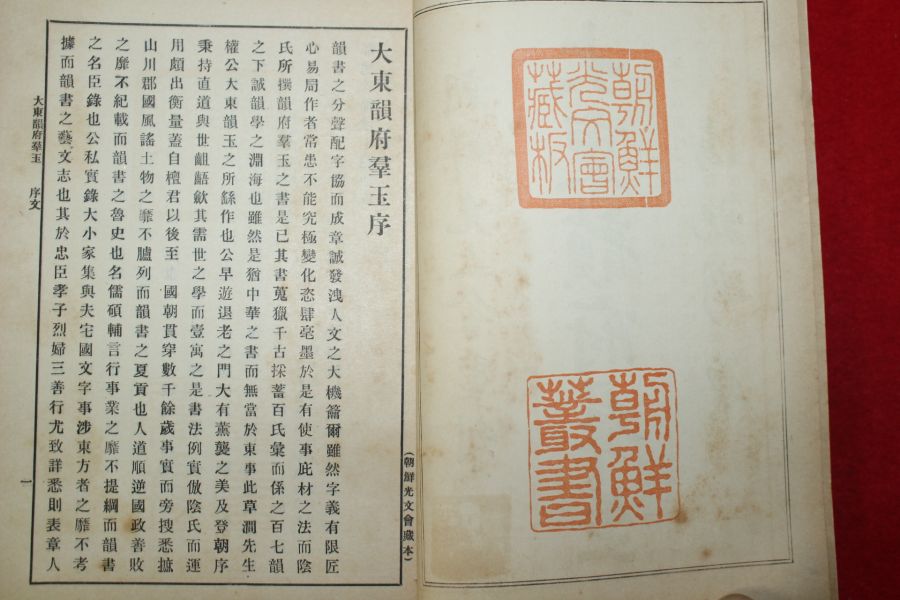 朝鮮
光文會
藏板
朝鮮
叢書
(朝鮮光文會藏本)
大東韻府羣玉序
韻書之分聲配字協而成章誠發洩人文之大機籥爾雖然字義有限匠
心易局作者常患不能究極變化恣肆毫墨於是有使事庇材之法而陰
氏所撰韻府羣玉之書是已其書蒐獵千古採蓄百氏彙而係之百七韻
之下誠韻學之淵海也雖然是猶中華之書而無當於東事此草澗先生
權公大東韻玉之所繇作也公早遊退老之門大有薰襲之美及登朝序
秉持直道與世齟齬歛其需世之學而壹寓之是書法例實倣陰氏而運
用頗出衡量蓋自檀君以後至 國朝貫穿數千餘歲事實而旁搜悉摭
山川郡國風謠土物之靡不臚列而韻書之夏貢也人道順逆國政善敗
之靡不紀載而韻書之魯史也名儒碩輔言行事業之靡不提綱而韻書
之名臣錄也公私實錄大小家集與夫宅國文字事涉東方者之靡不考
據而韻書之藝文志也其於忠臣孝子烈婦三善行尤致詳悉則表章人
大東韻府羣玉 序文
一